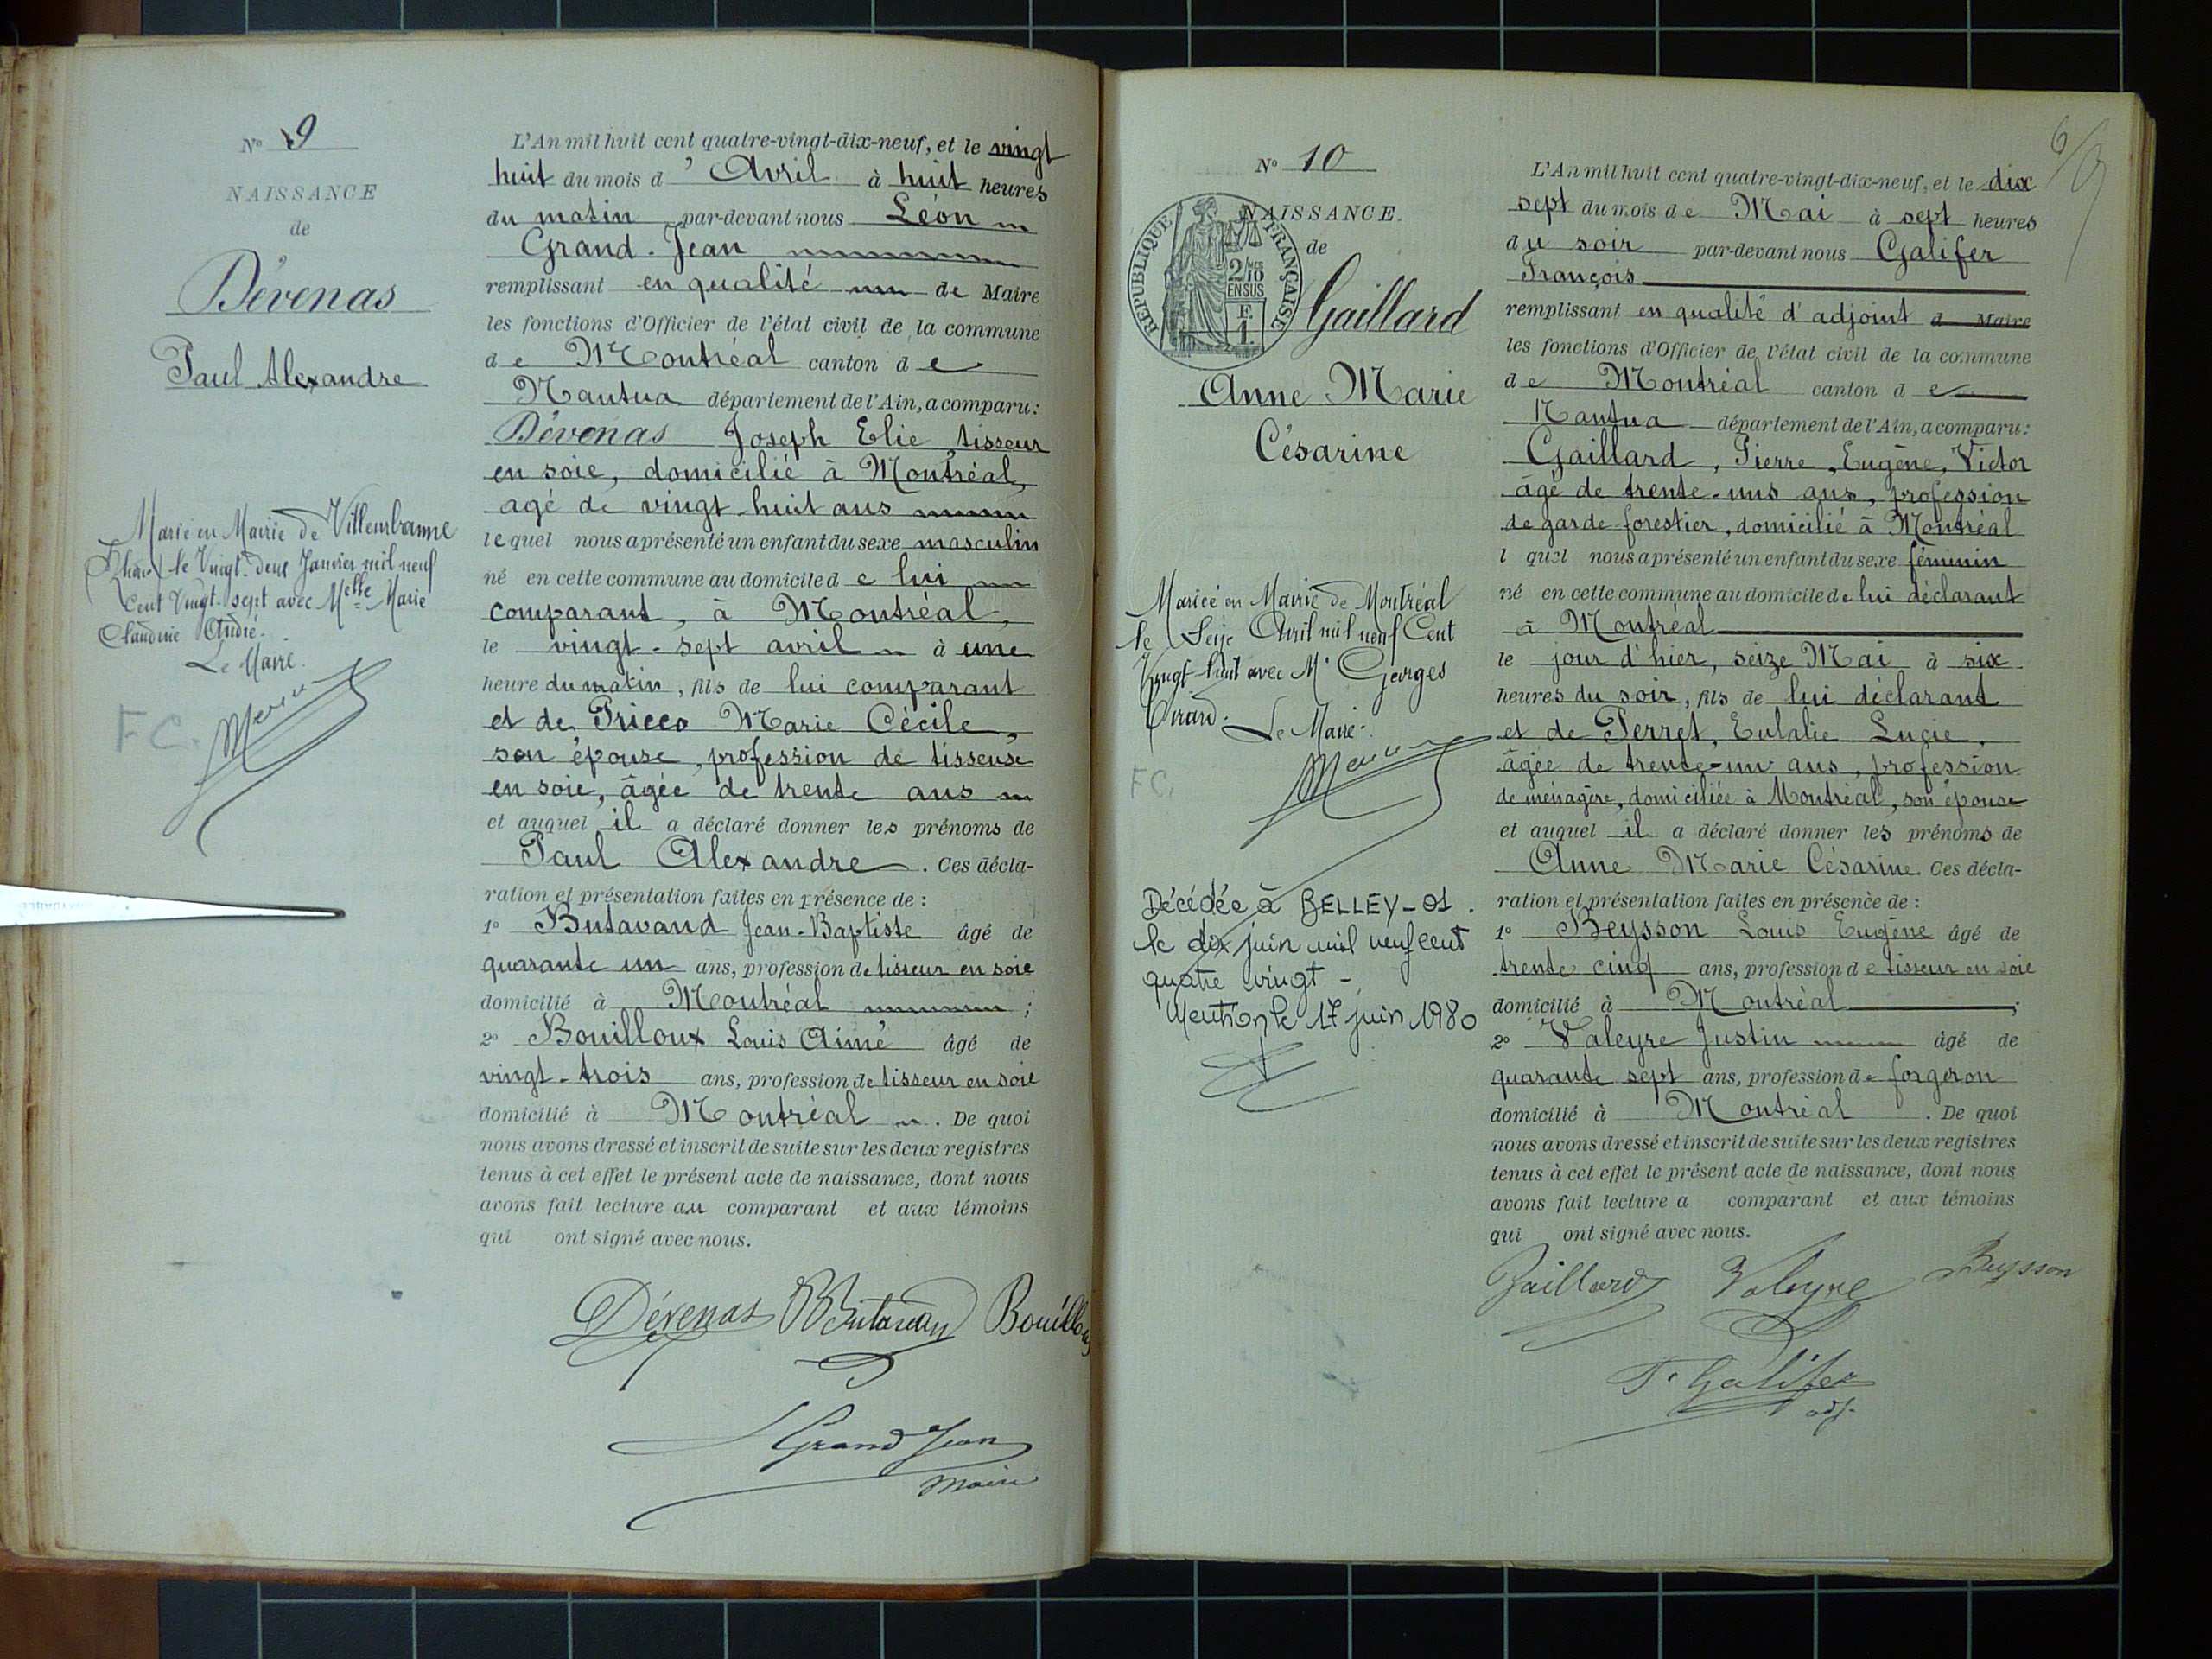 N° 9
NAISSANCE
de
Dévenas
Paul Alexandre
Marié en Mairie de Villeurbanne
Rhône le Vingt-deux Janvier mil neuf
Cent Vingt-sept avec Melle Marie
Claudine André.
Le Maire.
F.C.
L'An mil huit cent quatre-vingt-dix-neuf, et le vingt
huit du mois d'Avril à huit heures
du matin par-devant nous Léon
Grand-Jean
remplissant en qualité de Maire
les fonctions d'Officier de l'état civil de la commune
de Montréal canton de
Nantua département de l'Ain, a comparu:
Dévenas Joseph Elie, tisseur
en soie, domicilié à Montréal,
agé de vingt-huit ans
lequel nous a présenté un enfant du sexe masculin
né en cette commune au domicile de lui
comparant, à Montréal,
le vingt-sept avril à une
heure du matin, fils de lui comparant
et de Pricco Marie Cécile,
son épouse, profession de tisseuse
en soie, âgée de trente ans
et auquel il a déclaré donner les prénoms de
Paul Alexandre. Ces décla-
ration et présentation faites en présence de :
1° Butavand Jean-Baptiste âgé de
quarante un ans, profession de tisseur en soie
domicilié à Montréal ;
2° Bouilloux Louis Aimé âgé de
vingt-trois ans, profession de tisseur en soie
domicilié à Montréal. De quoi
nous avons dressé et inscrit de suite sur les deux registres
tenus à cet effet le présent acte de naissance, dont nous
avons fait lecture au comparant et aux témoins
qui ont signé avec nous.
Dévenas Butavand Bouilloux
Grand Jean
Maire
6
N° 10
NAISSANCE.
de
RÉPUBLIQUE FRANÇAISE
2/10 EN SUS
Gaillard
Anne Marie
Césarine
Mariée en Mairie de Montréal
le Seize Avril mil neuf Cent
Vingt-huit avec Mr Georges
Girard.
Le Maire.
F.C.
Décédée à BELLEY-01.
le dix juin mil neuf cent
quatre vingt -
Mention le 17 juin 1980
L'An mil huit cent quatre-vingt-dix-neuf, et le dix
sept du mois de Mai à sept heures
du soir par-devant nous Galifer
François
remplissant en qualité d'adjoint d Maire
les fonctions d'Officier de l'état civil de la commune
de Montréal canton de
Nantua département de l'Ain, a comparu:
Gaillard, Pierre, Eugène, Victor
âgé de trente-uns ans, profession
de garde-forestier, domicilié à Montréal
l quel nous a présenté un enfant du sexe féminin
né en cette commune au domicile de lui déclarant
à Montréal
le jour d'hier, seize Mai à six
heures du soir, fils de lui déclarant
et de Perret, Eulalie Lucie,
âgée de trente-un ans, profession
de ménagère, domiciliée à Montréal, son épouse
et auquel il a déclaré donner les prénoms de
Anne Marie Césarine. Ces décla-
ration et présentation faites en présence de :
1° Beysson Louis Eugène âgé de
trente cinq ans, profession de tisseur en soie
domicilié à Montréal ;
2° Valeyre Justin âgé de
quarante sept ans, profession de forgeron
domicilié à Montréal. De quoi
nous avons dressé et inscrit de suite sur les deux registres
tenus à cet effet le présent acte de naissance, dont nous
avons fait lecture a comparant et aux témoins
qui ont signé avec nous.
Gaillard Valeyre Beysson
F. Galifer
adj.